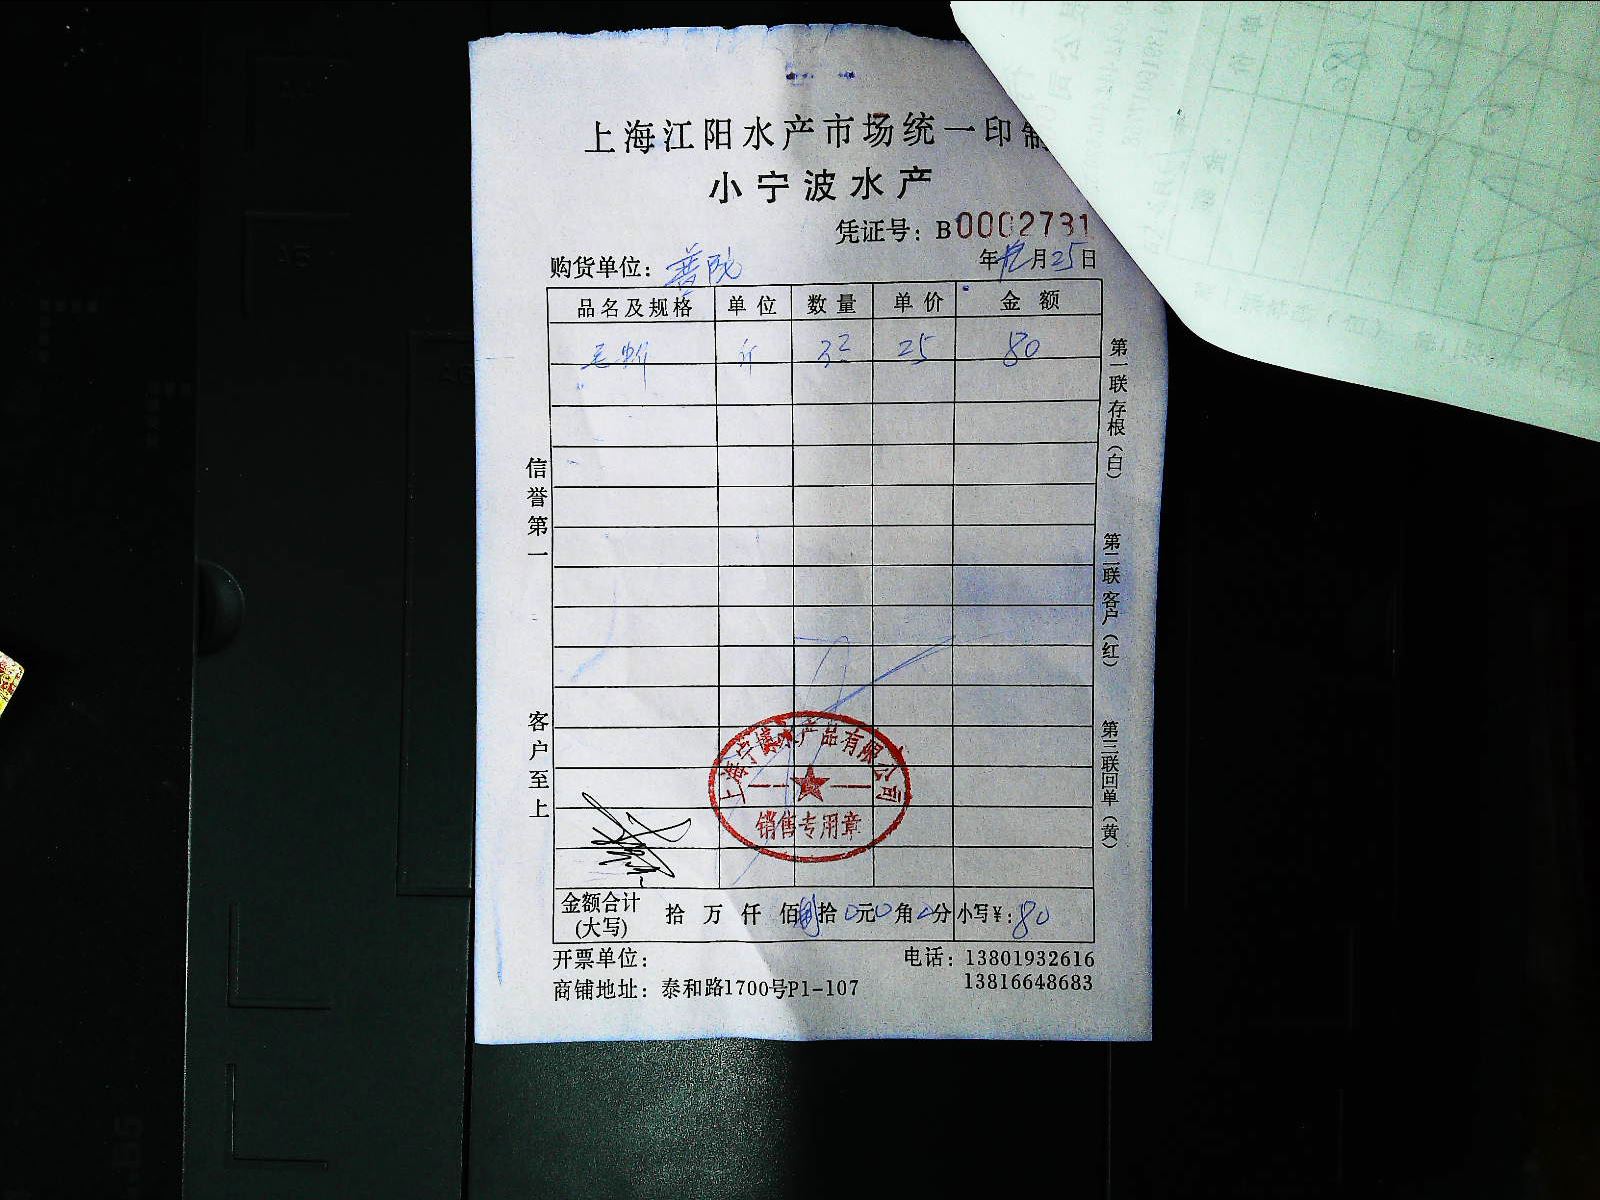 上海江阳水产市场统一印制
小宁波水产
凭证号：B0002731
购货单位：普陀 年12月25日
品名及规格 单位 数量 单价 金额
毛蚶 斤 3.2 25 80
信誉第一
客户至上
第一联存根（白）
第二联客户（红）
第三联回单（黄）
上海宁镇水产品有限公司
销售专用章
金额合计(大写) 拾 万 仟 佰捌拾0元0角0分 小写¥:80
开票单位： 电话：13801932616
13816648683
商铺地址：泰和路1700号P1-107
A5
B5